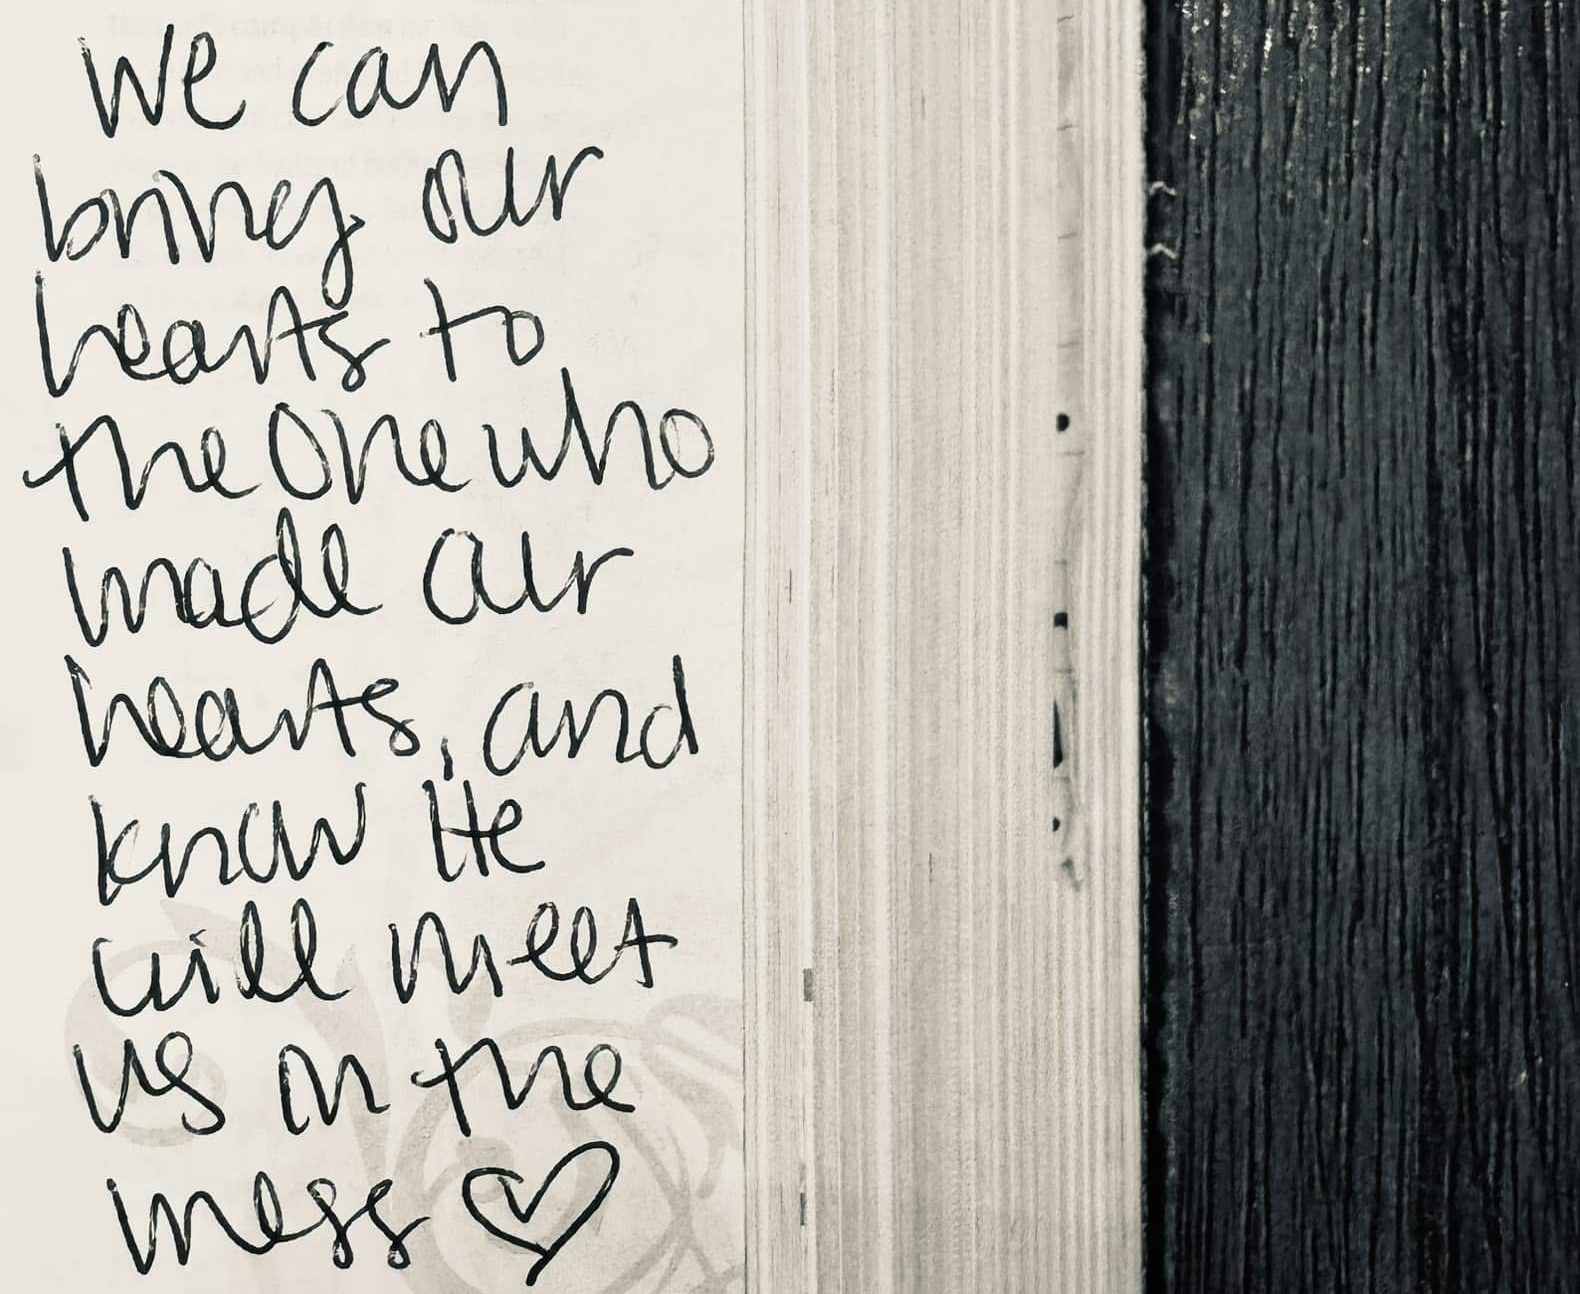 We can
bring our
hearts to
the One who
made our
hearts, and
know He
will meet
us in the
mess ♡